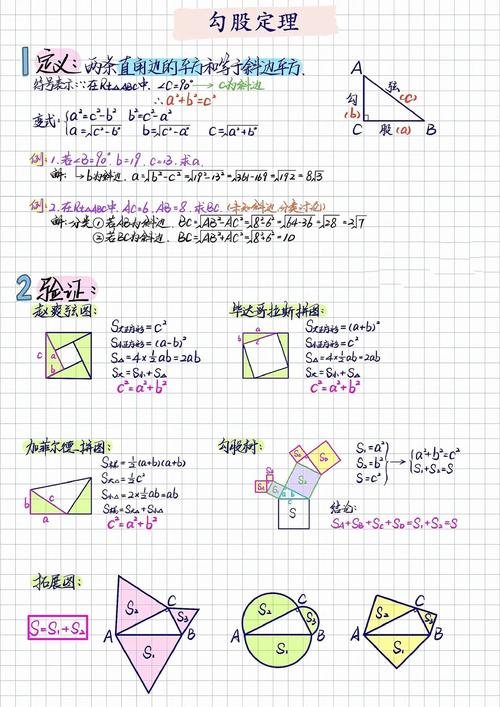 勾股定理
1 定义: 两条直角边的平方和等于斜边平方.
符号表示: ∵在Rt△ABC中, ∠C=90° → C为斜边
∴a²+b²=c²
变式: {a²=c²-b² b²=c²-a²
{a=√c²-b² b=√c²-a² c=√a²+b²
A
勾 (b)
弦 (c)
C 股 (a) B
例: 1. 若∠B=90°, b=19, c=13. 求a.
解: → b为斜边. a=√b²-c²=√19²-13²=√361-169=√192=8√3
例: 2. 在Rt△ABC中, AC=6, AB=8, 求BC. (未知斜边, 分类讨论)
解: 分类 ①若AB为斜边, BC=√AB²-AC²=√8²-6²=√64-36=√28=2√7
②若BC为斜边, BC=√AB²+AC²=√8²+6²=10
2 验证:
赵爽弦图:
c a b
S大正方形=c²
S小正方形=(a-b)²
S△=4×½ab=2ab
S大=S小+S△
c²=a²+b²
毕达哥拉斯拼图:
a b c
S大正方形=(a+b)²
S小正方形=c²
S△=4×½ab=2ab
S大=S小+S△
c²=a²+b²
加菲尔德拼图:
b c a
S梯=½(a+b)(a+b)
S大△=½c²
S小△=2×½ab=ab
S梯=S大△+S小△
c²=a²+b²
勾股树:
S_A S_B S₁ S_C S_D S₂ a b c S
S₁=a²
S₂=b²
S=c²
→ {a²+b²=c²
{S₁+S₂=S
结论:
S_A+S_B+S_C+S_D=S₁+S₂=S
拓展图:
S=S₁+S₂
A B C S₁ S₂ S₃
A B C S₁ S₂ S₃
A B C S₁ S₂ S₃